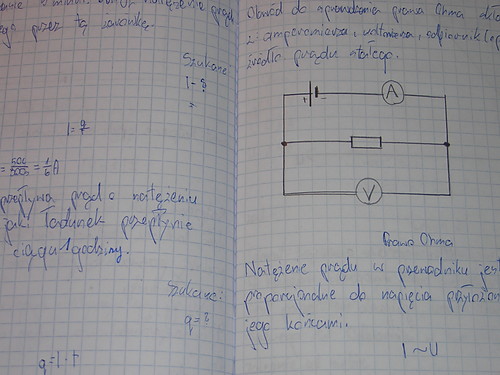 natężenie prąd
przez tą żarówkę.
Szukane:
I - ?
=
I = q/t
= 50C/300s = 1/6 A
przepływa prąd o natężeniu
jaki ładunek przepłynie
ciągu 1 godziny.
Szukane:
q = ?
q = I · t
Obwód do sprawdzenia prawa Ohma
z amperomierza, woltomierza,
źródła prądu stałego.
+ -
A
V
Prawo Ohma
Natężenie prądu w przewodniku jest
proporcjonalne do napięcia
jego końcami.
I ~ U